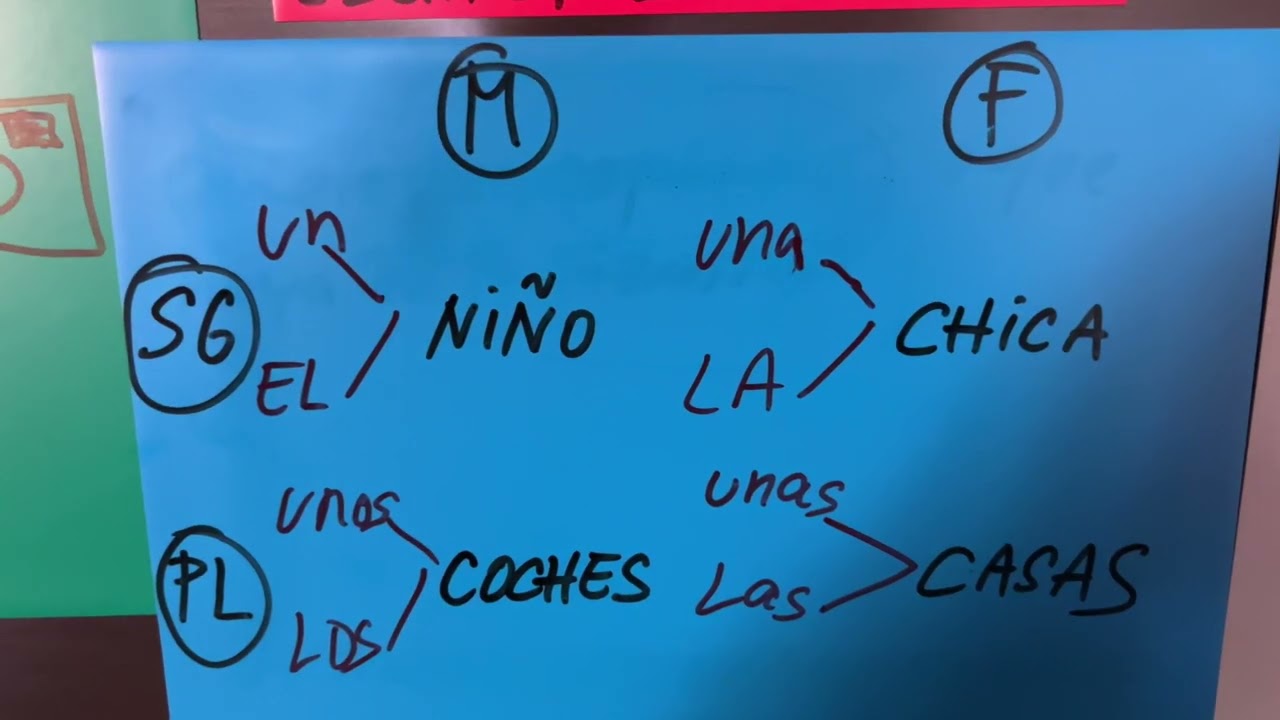 M F
un una
SG NIÑO CHICA
EL LA
unos unas
PL COCHES CASAS
LOS Las